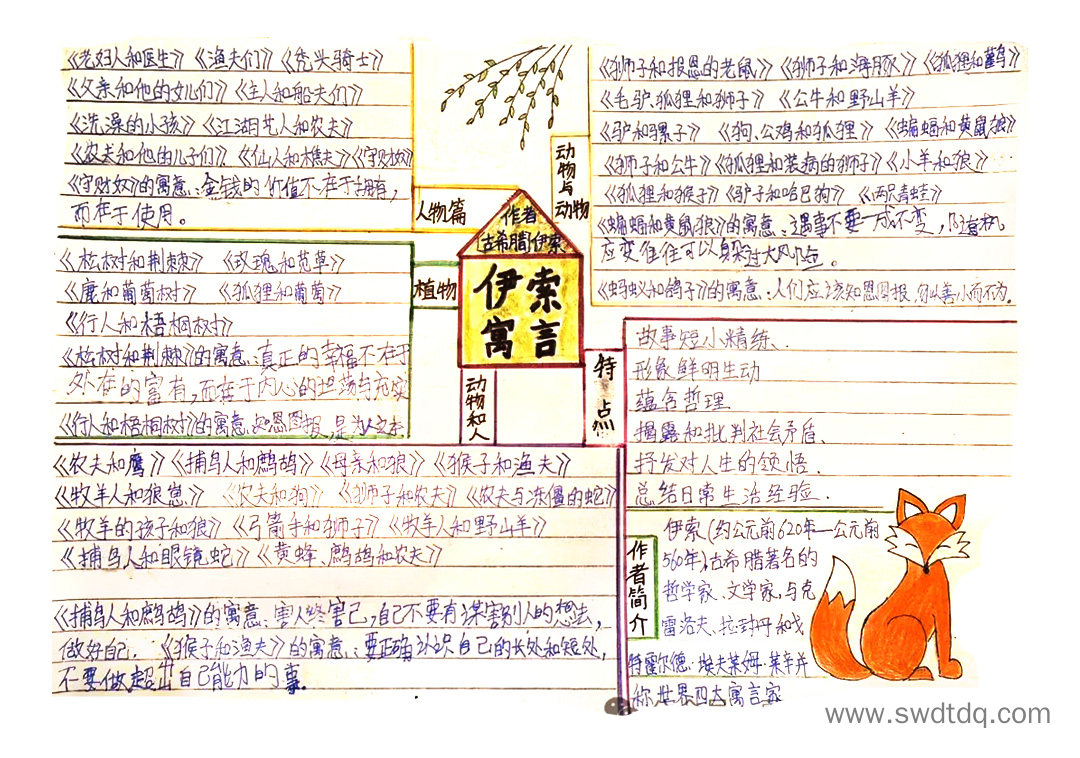 《老妇人和医生》《渔夫们》《秃头骑士》
《父亲和他的女儿们》《主人和船夫们》
《洗澡的小孩》《江湖艺人和农夫》
《农夫和他的儿子们》《仙人和樵夫》《守财奴》
《守财奴》的寓意:金钱的价值不在于拥有,
而在于使用。
人物篇
《狮子和报恩的老鼠》《狮子和海豚》《狐狸和鹳鸟》
《毛驴.狐狸和狮子》《公牛和野山羊》
《驴和骡子》《狗.公鸡和狐狸》《蝙蝠和黄鼠狼》
《狮子和公牛》《狐狸和装病的狮子》《小羊和狼》
《狐狸和猴子》《驴子和哈巴狗》《两只青蛙》
《蝙蝠和黄鼠狼》的寓意:遇事不要一成不变,随机
应变往往可以躲过大风险。
《蚂蚁和鸽子》的寓意:人们应该知恩图报,勿以善小而不为。
动物与动物
作者
古希腊伊索
伊索
寓言
植物
《松树和荆棘》《玫瑰和苋草》
《鹿和葡萄树》《狐狸和葡萄》
《行人和梧桐树》
《松树和荆棘》的寓意:真正的幸福不在于
外在的富有,而在于内心的坦荡与充实
《行人和梧桐树》的寓意:知恩图报,是为人之本
特点
故事短小精练、
形象鲜明生动
蕴含哲理
揭露和批判社会矛盾、
抒发对人生的领悟.
总结日常生活经验.
动物和人
《农夫和鹰》《捕鸟人和鹧鸪》《母亲和狼》《猴子和渔夫》
《牧羊人和狼崽》《农夫和狗》《狮子和农夫》《农夫与冻僵的蛇》
《牧羊的孩子和狼》《弓箭手和狮子》《牧羊人和野山羊》
《捕鸟人和眼镜蛇》《黄蜂、鹧鸪和农夫》
《捕鸟人和鹧鸪》的寓意:害人终害己,自己不要有谋害别人的想法,
做好自己.《猴子和渔夫》的寓意:要正确认识自己的长处和短处,
不要做超出自己能力的事.
作者简介
伊索(约公元前620年—公元前
560年),古希腊著名的
哲学家、文学家,与克
雷洛夫、拉封丹和戈
特霍尔德·埃夫莱姆·莱辛并
称世界四大寓言家
www.swdtdq.com